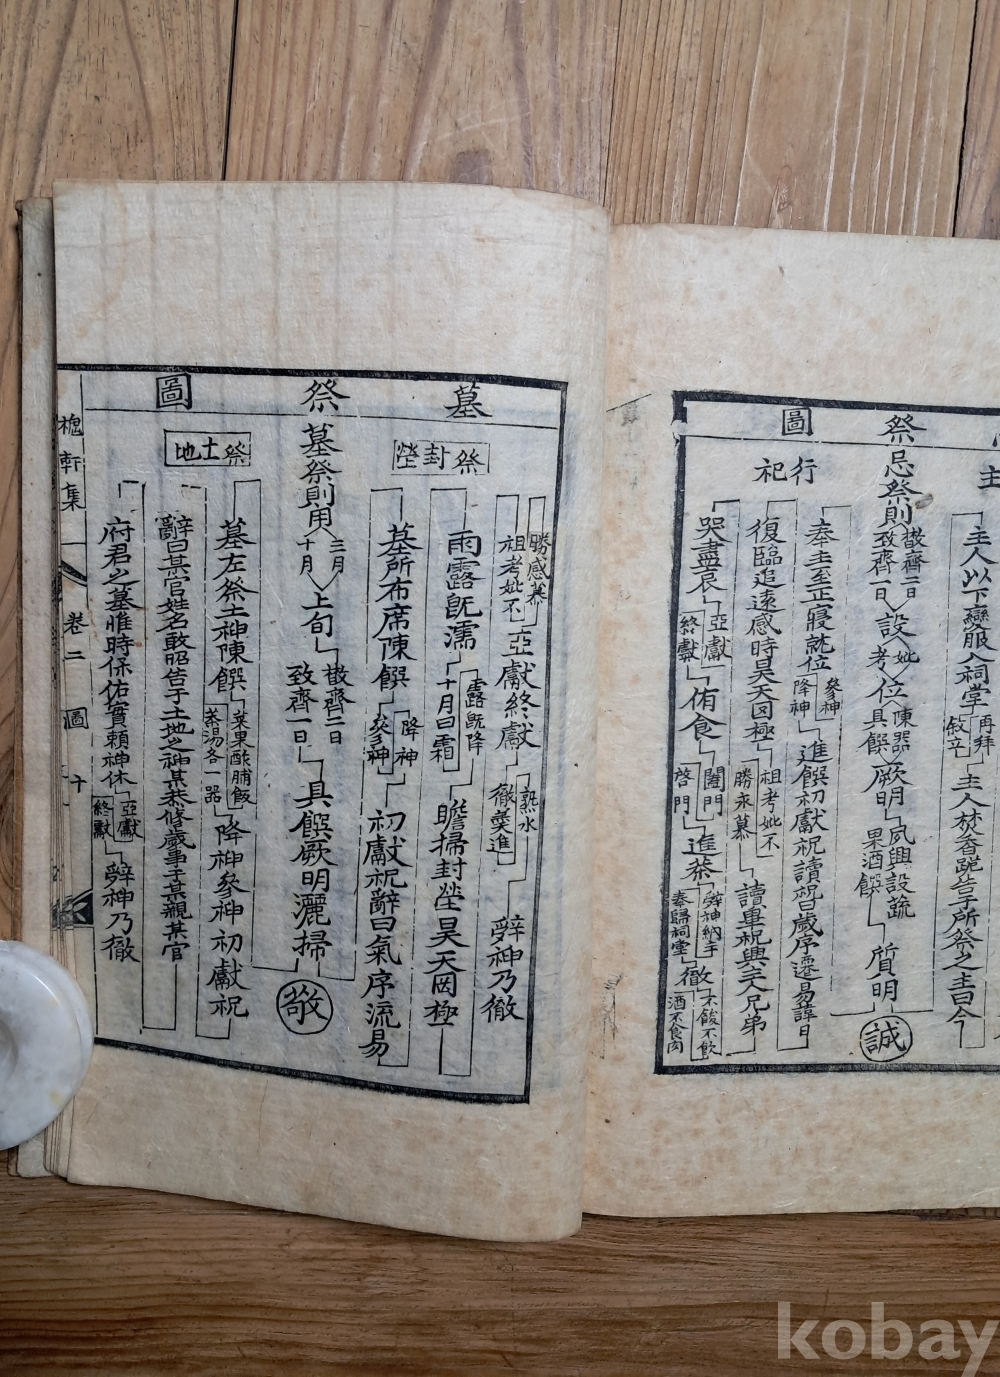 祭圖
祭忌祭則
散齊二日
致齊一日
設
考妣
位
陳器
具饌
厥明
夙興設蔬
果酒饌
質明
誠
主
主人以下變服入祠堂
再拜
敘立
主人焚香跪告于所祭之主曰今
行祀
奉主至正寢就位
參神
降神
進饌初獻祝讀曰歲序遷易諱日
復臨追遠感時昊天罔極
祖考妣不
勝永慕
讀畢祝興主人兄弟
哭盡哀
亞獻
終獻
侑食
闔門
啓門
進茶
辭神納主
奉歸祠堂
徹
不飯不飮
酒不食肉
墓祭圖
墓祭則用
三月
十月
上旬
散齊二日
致齊一日
具饌厥明灑掃
敬
祭封塋
墓所布席陳饌
降神
參神
初獻祝辭曰氣序流易
雨露旣濡
十月曰霜
露旣降
瞻掃封塋昊天罔極
祖考妣不
勝感慕
亞獻終獻
熟水
徹羹進
辭神乃徹
祭土地
墓左祭土神陳饌
菜果酢脯飯
蒸湯各一器
降神參神初獻祝
辭曰某官姓名敢昭告于土地之神某恭修歲事于某親某官
府君之墓惟時保佑實賴神休
亞獻
終獻
辭神乃徹
軒集
卷二
圖
十
kobay